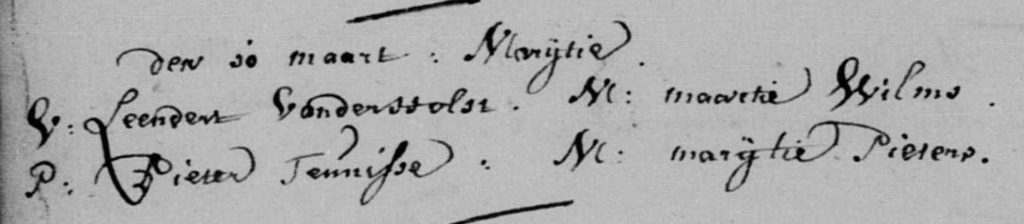 den 10 maart : Marijtie .
V: Leendert Vanderstolst . M: maertie Wilms .
P: Pieter Teunisse : M: marijtie Pieters .